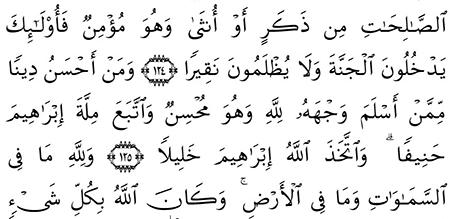 ٱلصَّـٰلِحَـٰتِ مِن ذَكَرٍ أَوْ أُنثَىٰ وَهُوَ مُؤْمِنٌ فَأُو۟لَـٰٓئِكَ
يَدْخُلُونَ ٱلْجَنَّةَ وَلَا يُظْلَمُونَ نَقِيرًا ١٢٤ وَمَنْ أَحْسَنُ دِينًا
مِّمَّنْ أَسْلَمَ وَجْهَهُۥ لِلَّهِ وَهُوَ مُحْسِنٌ وَٱتَّبَعَ مِلَّةَ إِبْرَٰهِيمَ
حَنِيفًا ۗ وَٱتَّخَذَ ٱللَّهُ إِبْرَٰهِيمَ خَلِيلًا ١٢٥ وَلِلَّهِ مَا فِى
ٱلسَّمَـٰوَٰتِ وَمَا فِى ٱلْأَرْضِ ۚ وَكَانَ ٱللَّهُ بِكُلِّ شَىْءٍ